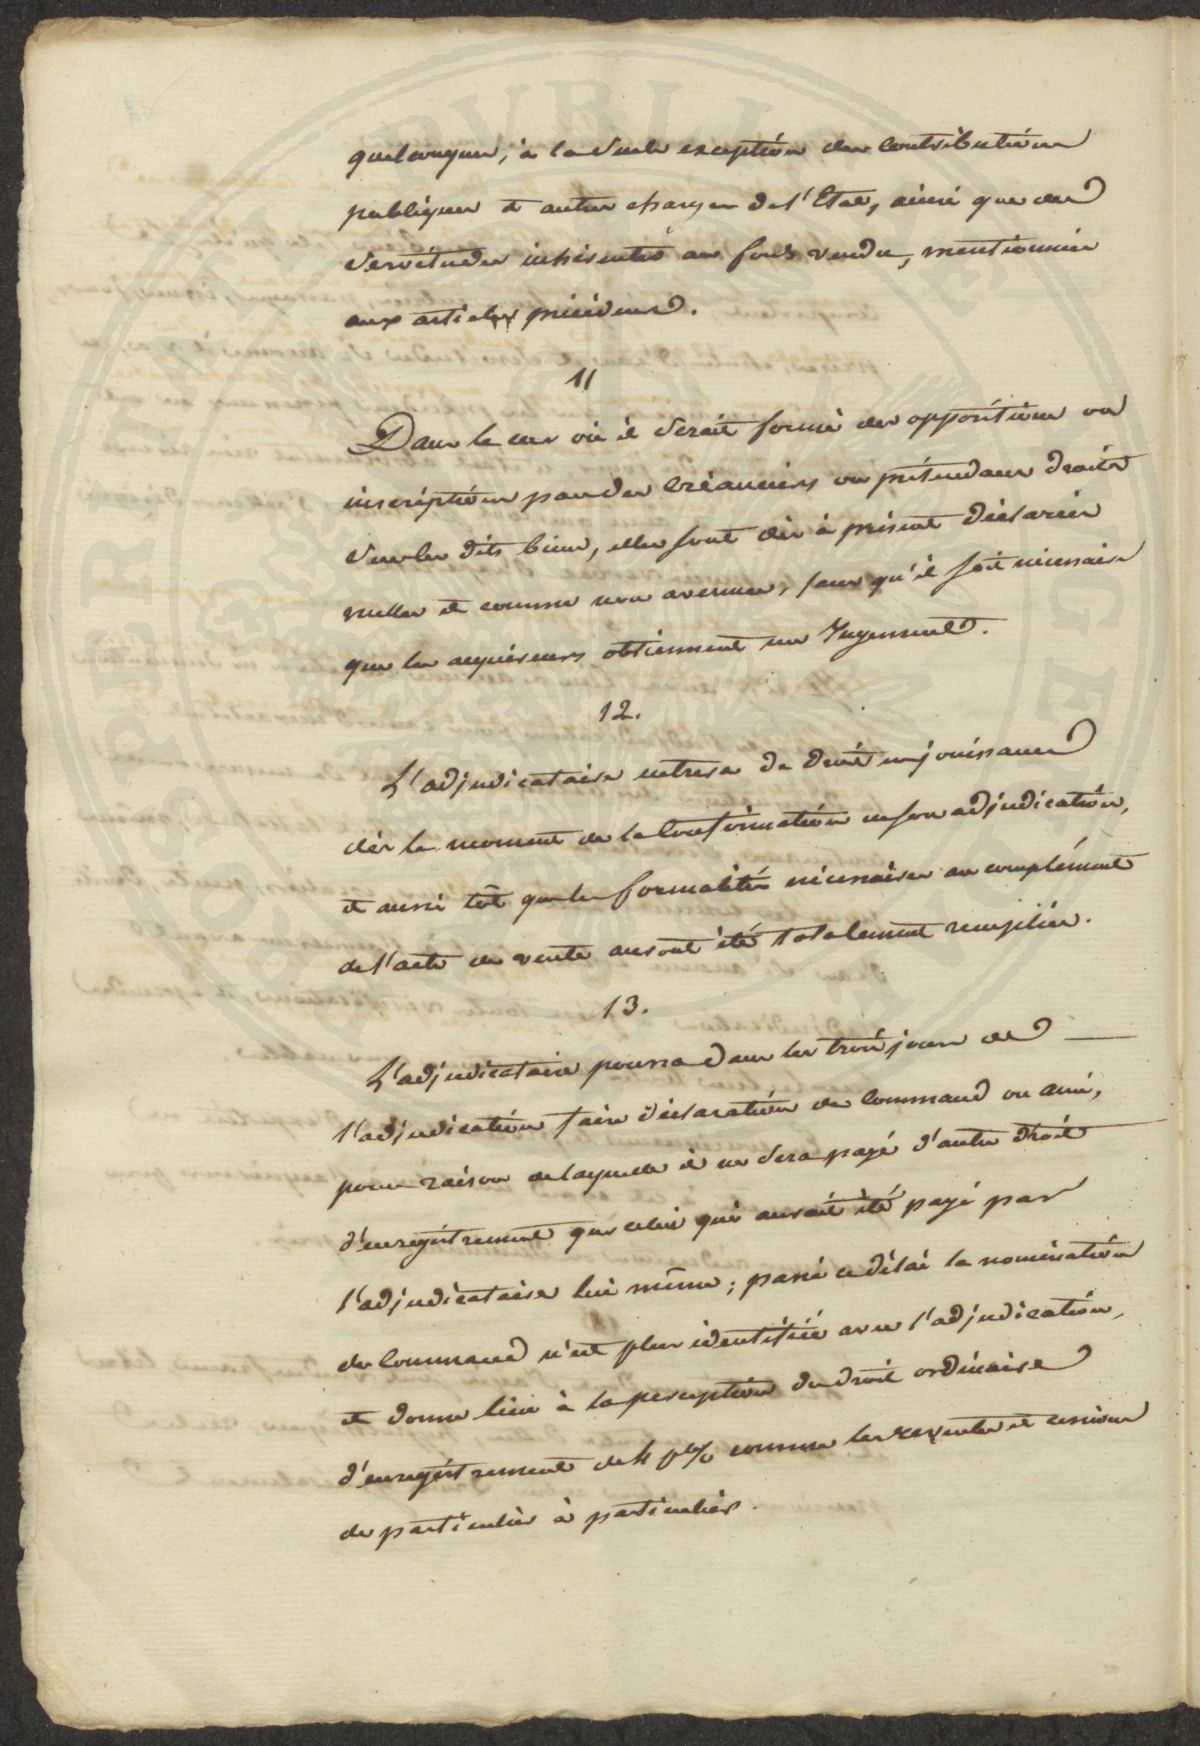 quelconques, à la seule exception des contributions
publiques et autres charges de l'Etat, ainsi que des
servitudes inhérentes au fonds vendu, mentionnées
aux articles précédens.
11
Dans le cas où il serait formé des oppositions ou
inscriptions par des créanciers ou prétendans droits
sur les dits biens, elles sont dès à présent déclarées
nulles et comme non avenues, sans qu'il soit nécessaire
que les acquéreurs obtiennent un Jugement.
12.
L'adjudicataire entrera de droit en jouissance
dès le moment de la Confirmation en son adjudication,
et aussi tôt que les formalités nécessaires au complément
de l'acte de vente auront été totalement remplies.
13.
L'adjudicataire pourra dans les trois jours de
l'adjudication faire déclaration de Command ou ami,
pour raison de laquelle il ne sera payé d'autre droit
d'enregistrement que celui qui aurait été payé par
l'adjudicataire lui même; passé ce délai la nomination
de Command n'est plus identifiée avec l'adjudication,
et donne lieu à la perception du droit ordinaire
d'enregistrement de 4 p% comme les reventes et cessions
de particulier à particulier.